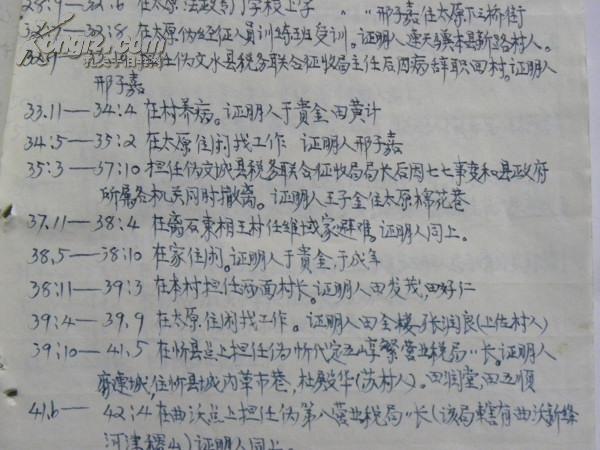 28:9— 32:6 在太原法政专门学校上学 〃 邢子嘉住太原下三桥街
32:7— 32:8 在太原伪经征人员训练班受训。证明人 本县新路村人。
任伪文水县税务联合征收局主任后因病辞职回村。证明人
邢子嘉
33.11— 34:4 在村养病。证明人于贵金 田黄计
34:5— 35:2 在太原住闲找工作 证明人邢子嘉
35:3— 37:10 担任伪文城县税务联合征收局局长后因七七事变和县政府
所属各机关同时撤离。证明人王子金住太原棉花巷
37.11— 38:4 在离石東相王村任维域家避难。证明人同上。
38.5— 38:10 在家住闲。证明人于贵金,于成年
38:11— 39:3 在本村担任 村长。证明人田发茂,田好仁
39:4— 39.9 在太原住闲找工作。证明人田全楼,张润良(上佐村人)
39:10— 41.5 在忻县点上担任伪忻代定五崞繁营业税局〃长。证明人
连城,住忻县城内草市巷,杜殿华(苏村人)。田润堂,田五顺
41.6— 42:4 在曲沃点上担任伪第八营业税局〃长(该局辖有曲沃新绛
河津稷山)证明人同上。